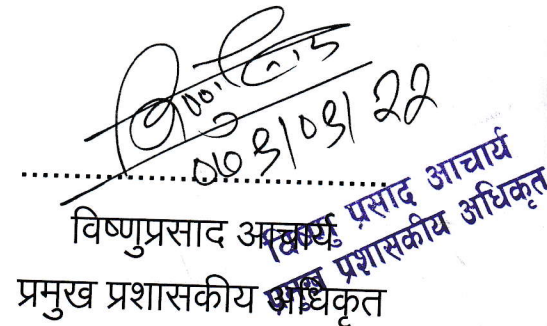 ०७९/०९/२२
........................................
विष्णुप्रसाद आचार्य
प्रमुख प्रशासकीय अधिकृत
विष्णु प्रसाद आचार्य
प्रमुख प्रशासकीय अधिकृत